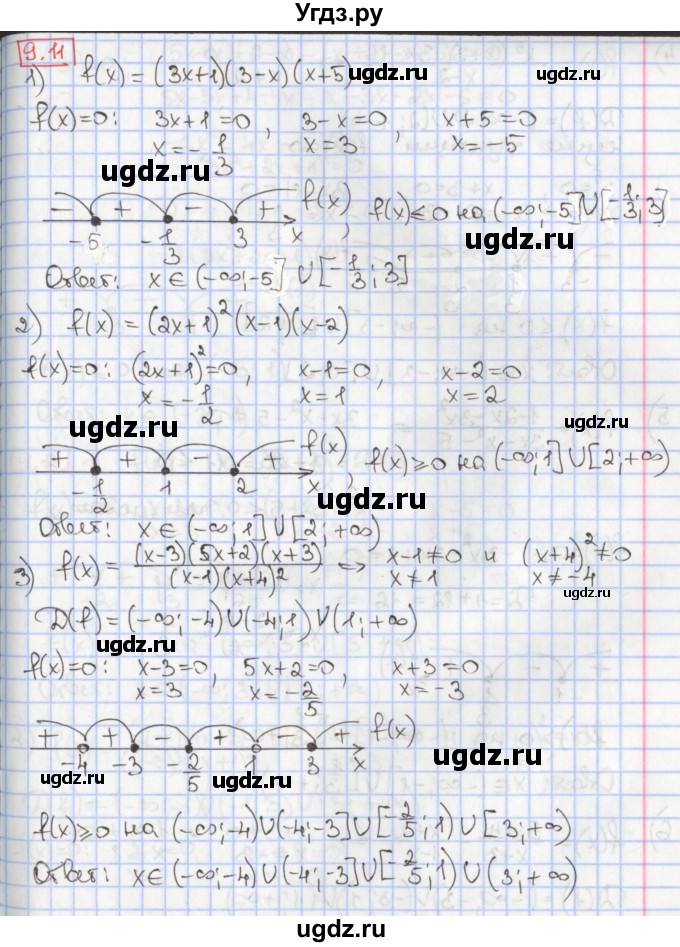 Угдз.ру
9.11
1) f(x) = (3x+1)(3-x)(x+5)
ugdz.ru
f(x)=0: 3x+1=0, 3-x=0, x+5=0
x=-1/3 x=3 x=-5
ugdz.ru
ugdz.ru
- + - + f(x)
-5 -1/3 3 x
, f(x)≤0 на (-∞;-5]∪[-1/3;3]
ugdz.ru
Ответ: x∈(-∞;-5]∪[-1/3;3]
2) f(x) = (2x+1)²(x-1)(x-2)
f(x)=0: (2x+1)²=0, x-1=0, x-2=0
x=-1/2 x=1 x=2
ugdz.ru
ugdz.ru
+ + - + f(x)
-1/2 1 2 x
, f(x)≥0 на (-∞;1]∪[2;+∞)
ugdz.ru
Ответ: x∈(-∞;1]∪[2;+∞)
3) f(x) = (x-3)(5x+2)(x+3)/(x-1)(x+4)² ↔ x-1≠0 и (x+4)²≠0
x≠1 x≠-4
ugdz.ru
D(f)=(-∞;-4)∪(-4;1)∪(1;+∞)
ugdz.ru
f(x)=0: x-3=0, 5x+2=0, x+3=0
x=3 x=-2/5 x=-3
+ + - + - + f(x)
-4 -3 -2/5 1 3 x
ugdz.ru
ugdz.ru
ugdz.ru
f(x)≥0 на (-∞;-4)∪(-4;-3]∪[-2/5;1)∪[3;+∞)
Ответ: x∈(-∞;-4)∪(-4;-3]∪[-2/5;1)∪(3;+∞)
ugdz.ru